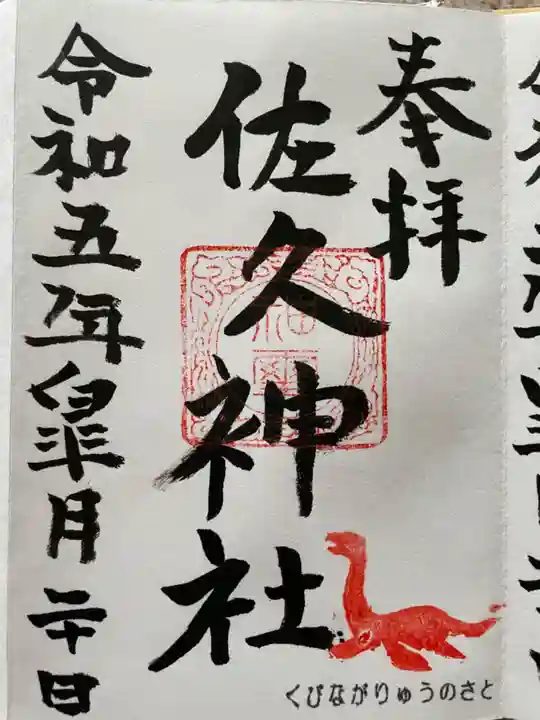 奉拝
佐久神社
令和五年皐月二十日
くびながりゅうのさと